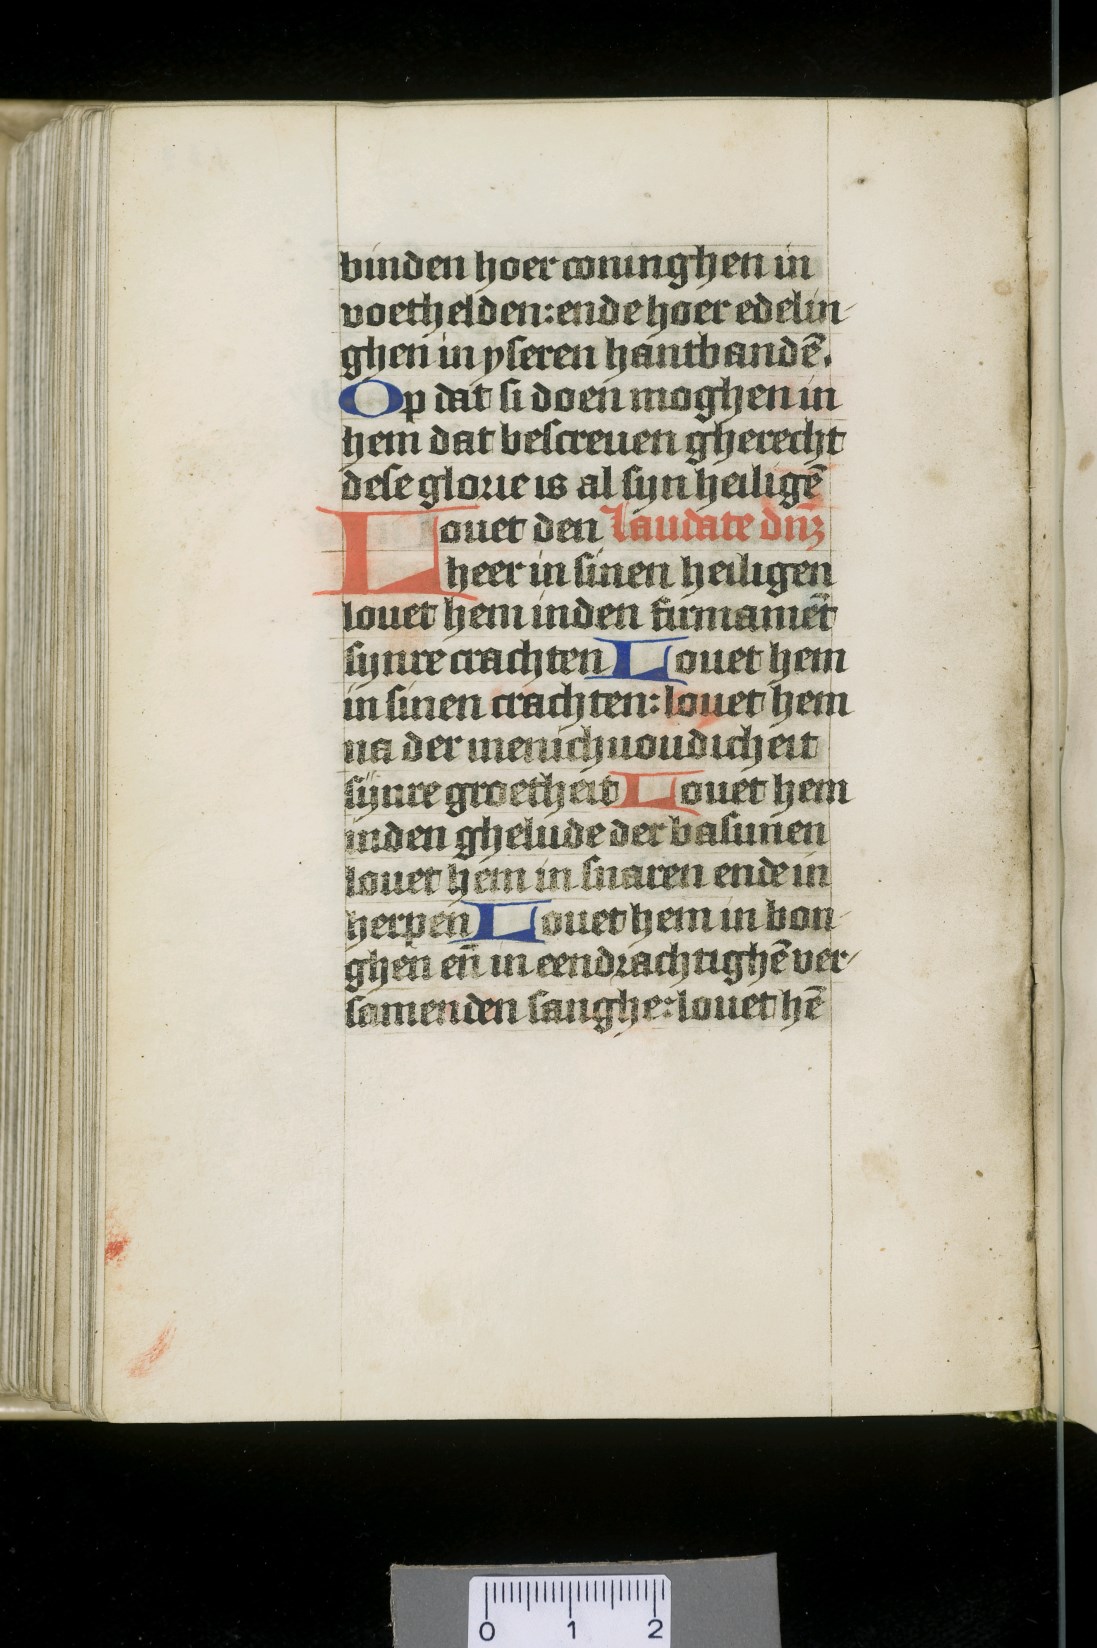 binden hoer coninghen in
voethelden: ende hoer edelin-
ghen in yseren hantbandē.
Op dat si doen moghen in
hem dat bescreuen gherecht
dese glorie is al syn heiligē
Louet den Laudate dnȝ
heer in sinen heiligen
louet hem inden firmamēt
synre crachten Louet hem
in sinen crachten: louet hem
na der menichuoudicheit
synre groetheit Louet hem
inden ghelude der basunen
louet hem in snaren ende in
herpen Louet hem in bon-
ghen eñ in eendrachtighē ver-
samenden sanghe: louet hē
0 1 2